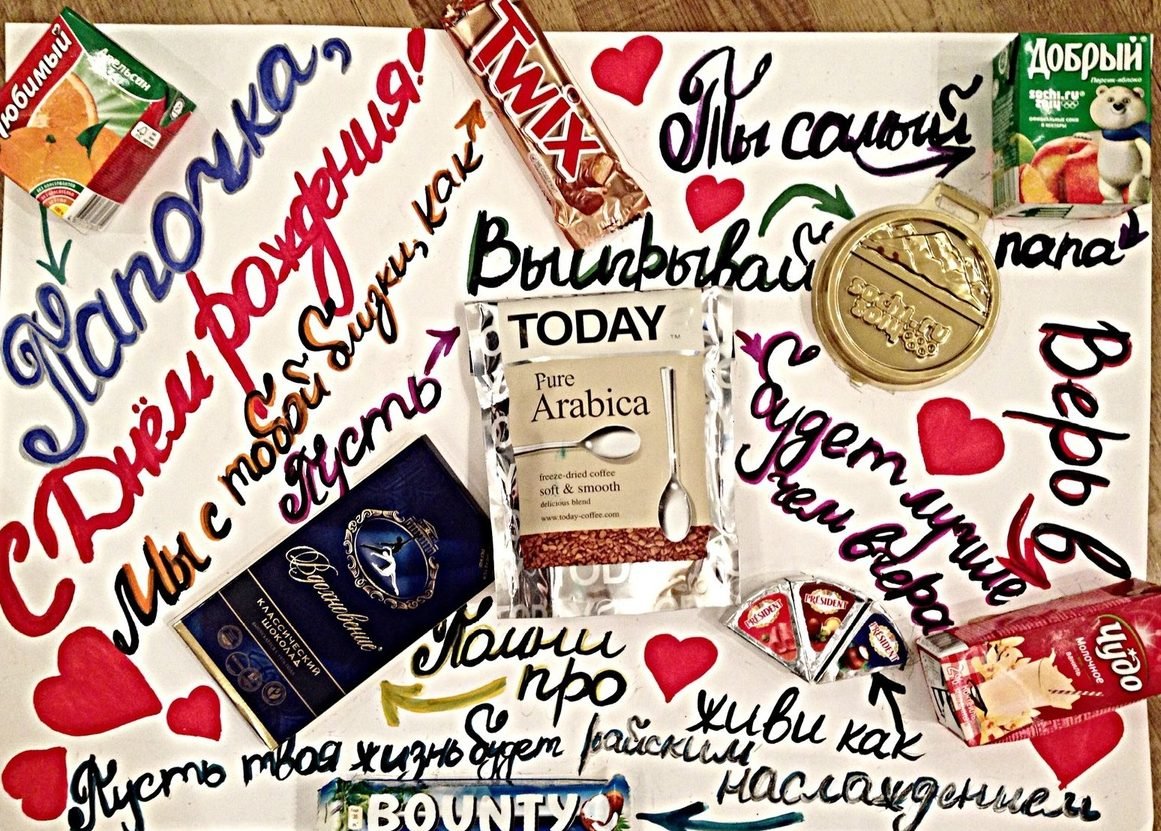 Любимый
Апельсин
Папочка,
С Днём рождения!
Мы с тобой близки, как
TWIX
Ты самый
Добрый
Персик-яблоко
sochi.ru
2014
папа
Выигрывай
sochi.ru
2014
Пусть
TODAY
TM
Pure
Arabica
freeze-dried coffee
soft & smooth
delicious blend
www.today-coffee.com
TODAY
будет лучше
чем вчера
Верь в
Чудо
Молочное
Помни
про
Вдохновение
КЛАССИЧЕСКИЙ
ШОКОЛАД
PRÉSIDENT
PRÉSIDENT
PRÉSIDENT
живи как
Пусть твоя жизнь будет райским
наслаждением
BOUNTY